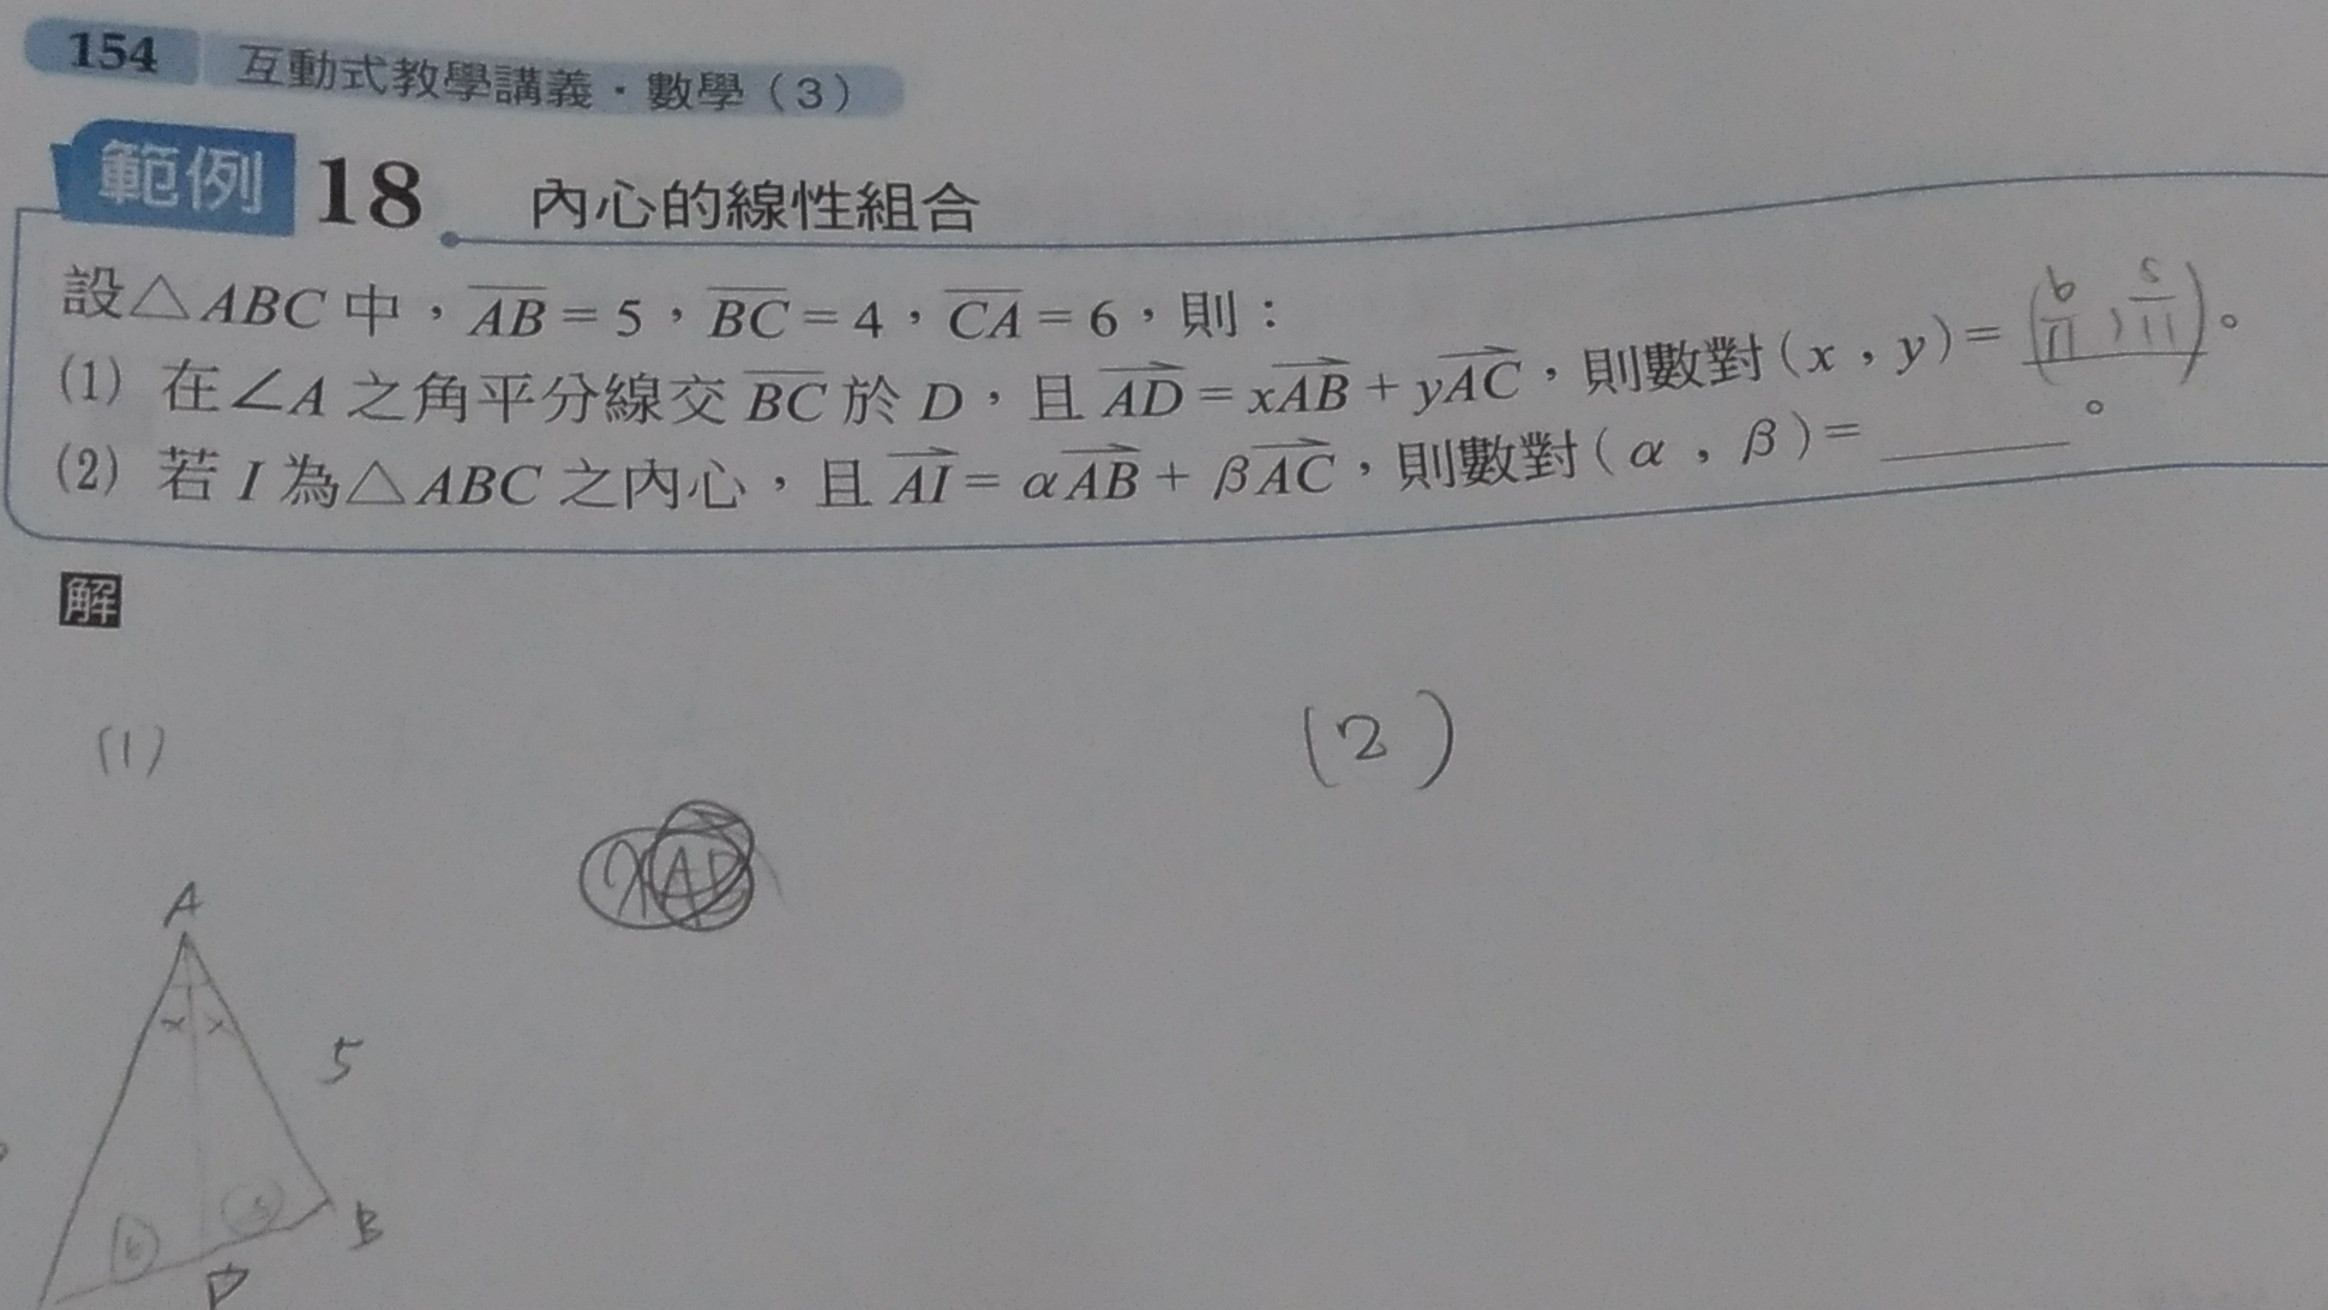 154 互動式教學講義・數學（3）
範例 18 內心的線性組合
設△ABC中，AB=5，BC=4，CA=6，則：
(1) 在∠A之角平分線交BC於D，且AD=xAB+yAC，則數對(x，y)=(6/11,5/11)。
(2) 若I為△ABC之內心，且AI=αAB+βAC，則數對(α，β)=______。
解
(1)
(2)
A
x x
5
6 5
B
D